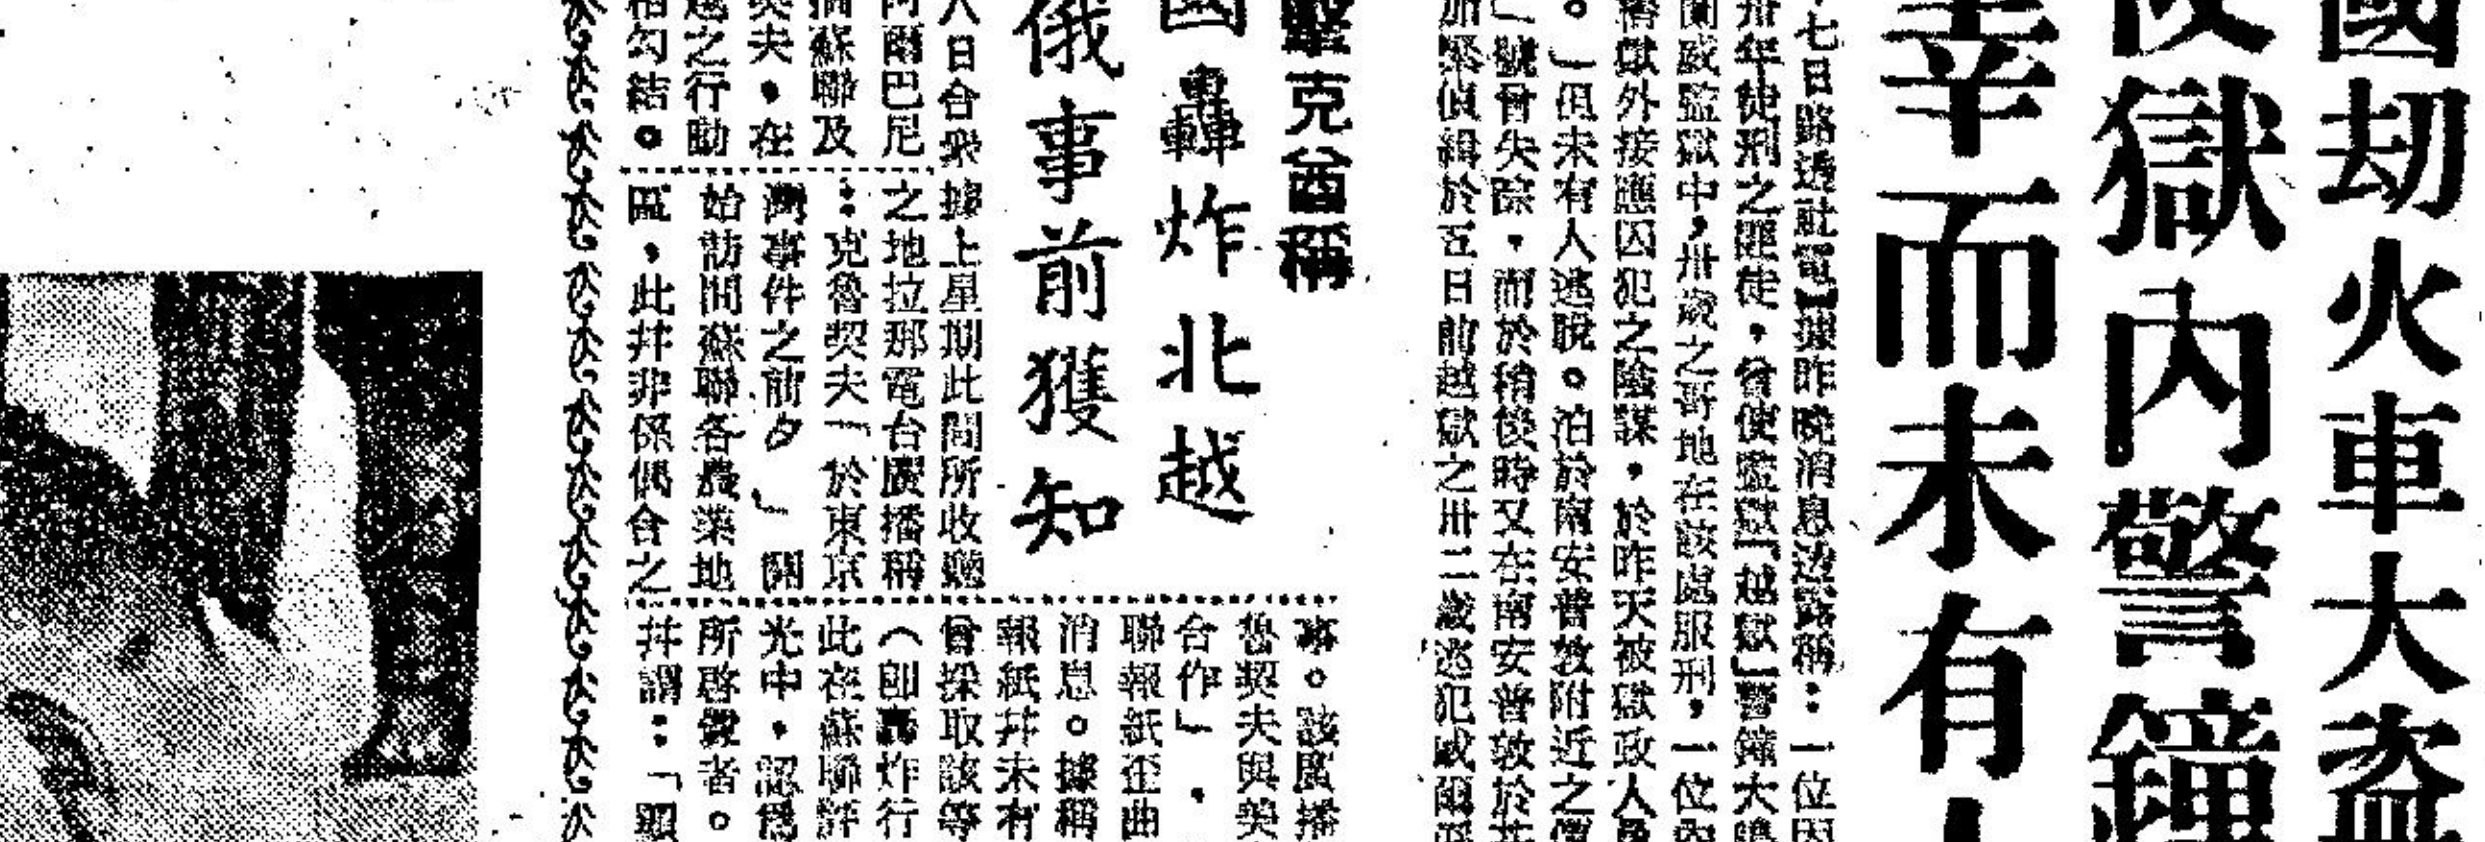 國劫火車大盗
獄內警鐘
幸而未有
七日路透社電】據昨晚消息透露稱：一位因
卅年徒刑之匪徒，曾使監獄「越獄」警鐘大鳴
威監獄中，卅歲之哥地在該處服刑，一位
獄外接應囚犯之陰謀，於昨天被獄政人員
。」但未有人逃脫。泊於南安普敦附近之
」號曾失踪，而於稍後時又在南安普敦於
加緊偵緝於五日前越獄之卅二歲逃犯威爾
克酋稱
國轟炸北越
俄事前獲知
八日合衆
阿爾巴尼
蘇聯及
契夫，在
越之行動
相勾結。
據上星期此間所收聽
之地拉那電台廣播稱
：克魯契夫「於東京
灣事件之前夕」開
始訪問蘇聯各農業地
區，此幷非係偶合之
事。該廣播
魯契夫與美
合作」，
聯報紙歪曲
消息。據稱
報紙幷未有
曾採取該等
（卽轟炸行
此在蘇聯評
光中，認爲
所啓釁者。
幷謂：「顯